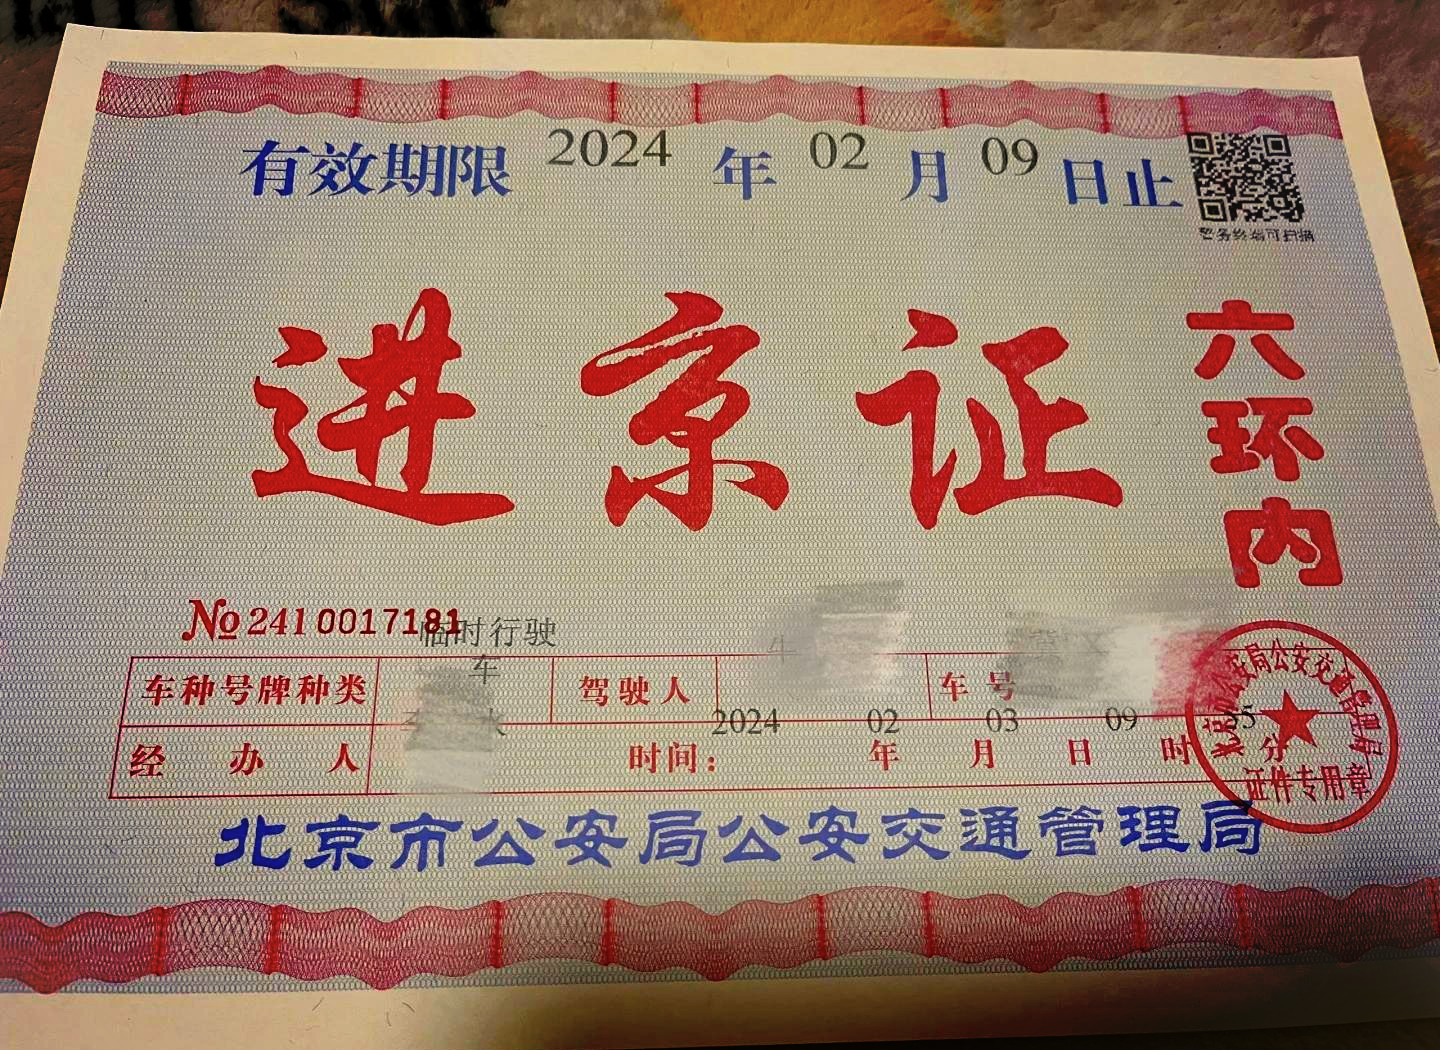 有效期限 2024 年 02 月 09 日止
警务终端可扫描
进京证
六环内
№ 2410017181
临时行驶车
车种号牌种类 驾驶人 车号
2024 02 03 09
经办人 时间： 年 月 日 时 分
北京市公安局公安交通管理局
证件专用章
北京市公安局公安交通管理局